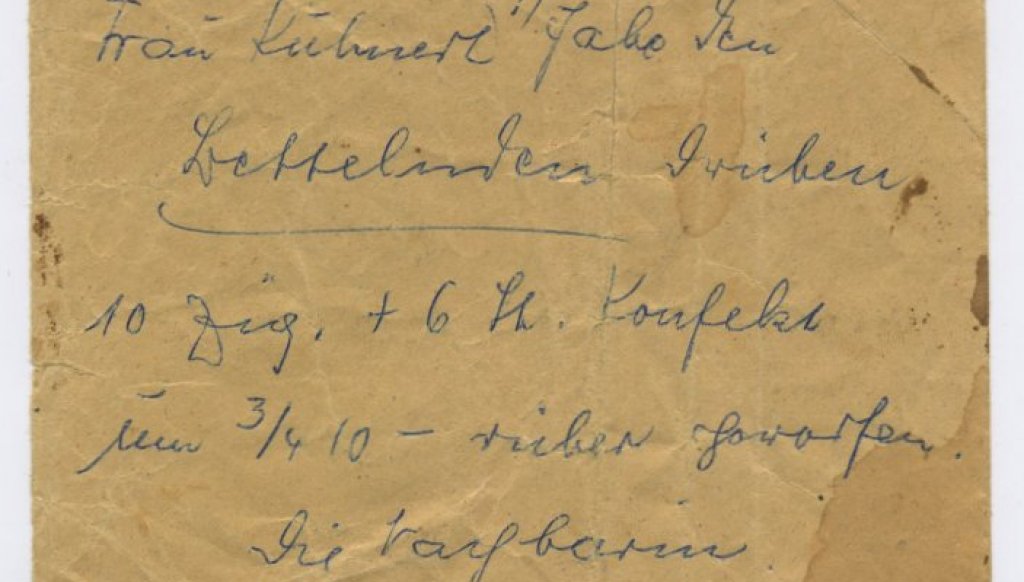 Frau Kühnert! Habe den
Bettelnden drüben
10 Zig. + 6 St. Konfekt
um 3/4 10 – rüber geworfen.
Die Nachbarin